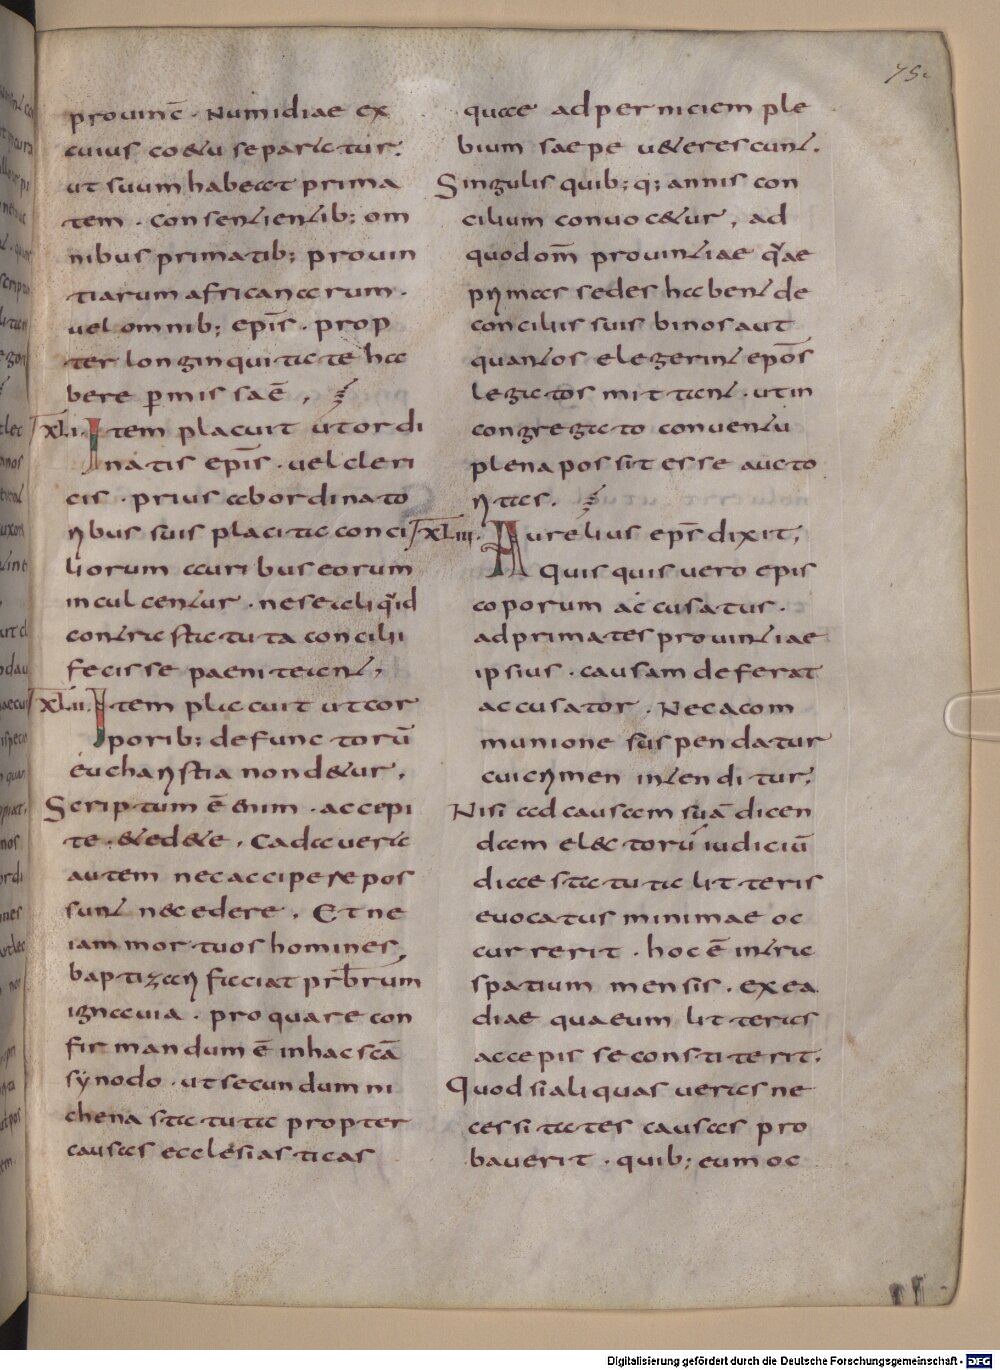 75.
prouinc̄ · Numidiae ex
cuius co&u separatur.
ut suum habeat prima
tem · consentientib; om
nibus primatib; prouin
tiarum africanarum ·
uel omnib; ep̄is · prop
ter longinquitate ha
bere p̄missaē ,
XLI. Item placuit ut ordi
natis ep̄is · uel cleri
cis · prius ab ordinato
ribus suis placita conci
liorum auribus eorum
inculcentur · ne se aliq̇d
contra statuta concilii
fecisse paeniteant ;
XLII. Item placuit ut cor
porib; defunctorū
eucharistia non d&ur ,
Scriptum ē enim · accepi
te · & ed&e , Cadauera
autem nec accipere pos
sunt n&c edere , Et ne
iam mortuos homines
baptizari faciat pr̄brum
ignauia · pro quare con
firmandum ē in hac sc̄a
sÿnodo · ut secundum ni
chena statuta propter
causas ecclesiasticas
quae ad perniciem ple
bium saepe u&erescunt .
Singulis quib; q; annis con
cilium conuoc&ur , ad
quod om̄ prouintiae q̇ae
primas sedes habent de
conciliis suis binos aut
quantos elegerint epōs
legatos mittant · ut in
congregato conuentu
plena possit esse aucto
ritas .
XLIII. Aurelius ep̄s dixit ;
Quisquis uero epis
coporum accusatus ·
ad primates prouintiae
ipsius · causam deferat
accusator · Nec a com
munione suspendatur
cui crimen intenditur ;
Nisi ad causam suā dicen
dam el&torū iudiciū
die statuta litteris
euocatus minimae oc
currerit · hoc ē intra
spatium mensis · ex ea
diae qua eum litteras
accepis se constiterit .
Quod si aliquas ueras ne
cessitates causas pro
bauerit · quib; eum oc
Digitalisierung gefördert durch die Deutsche Forschungsgemeinschaft - DFG